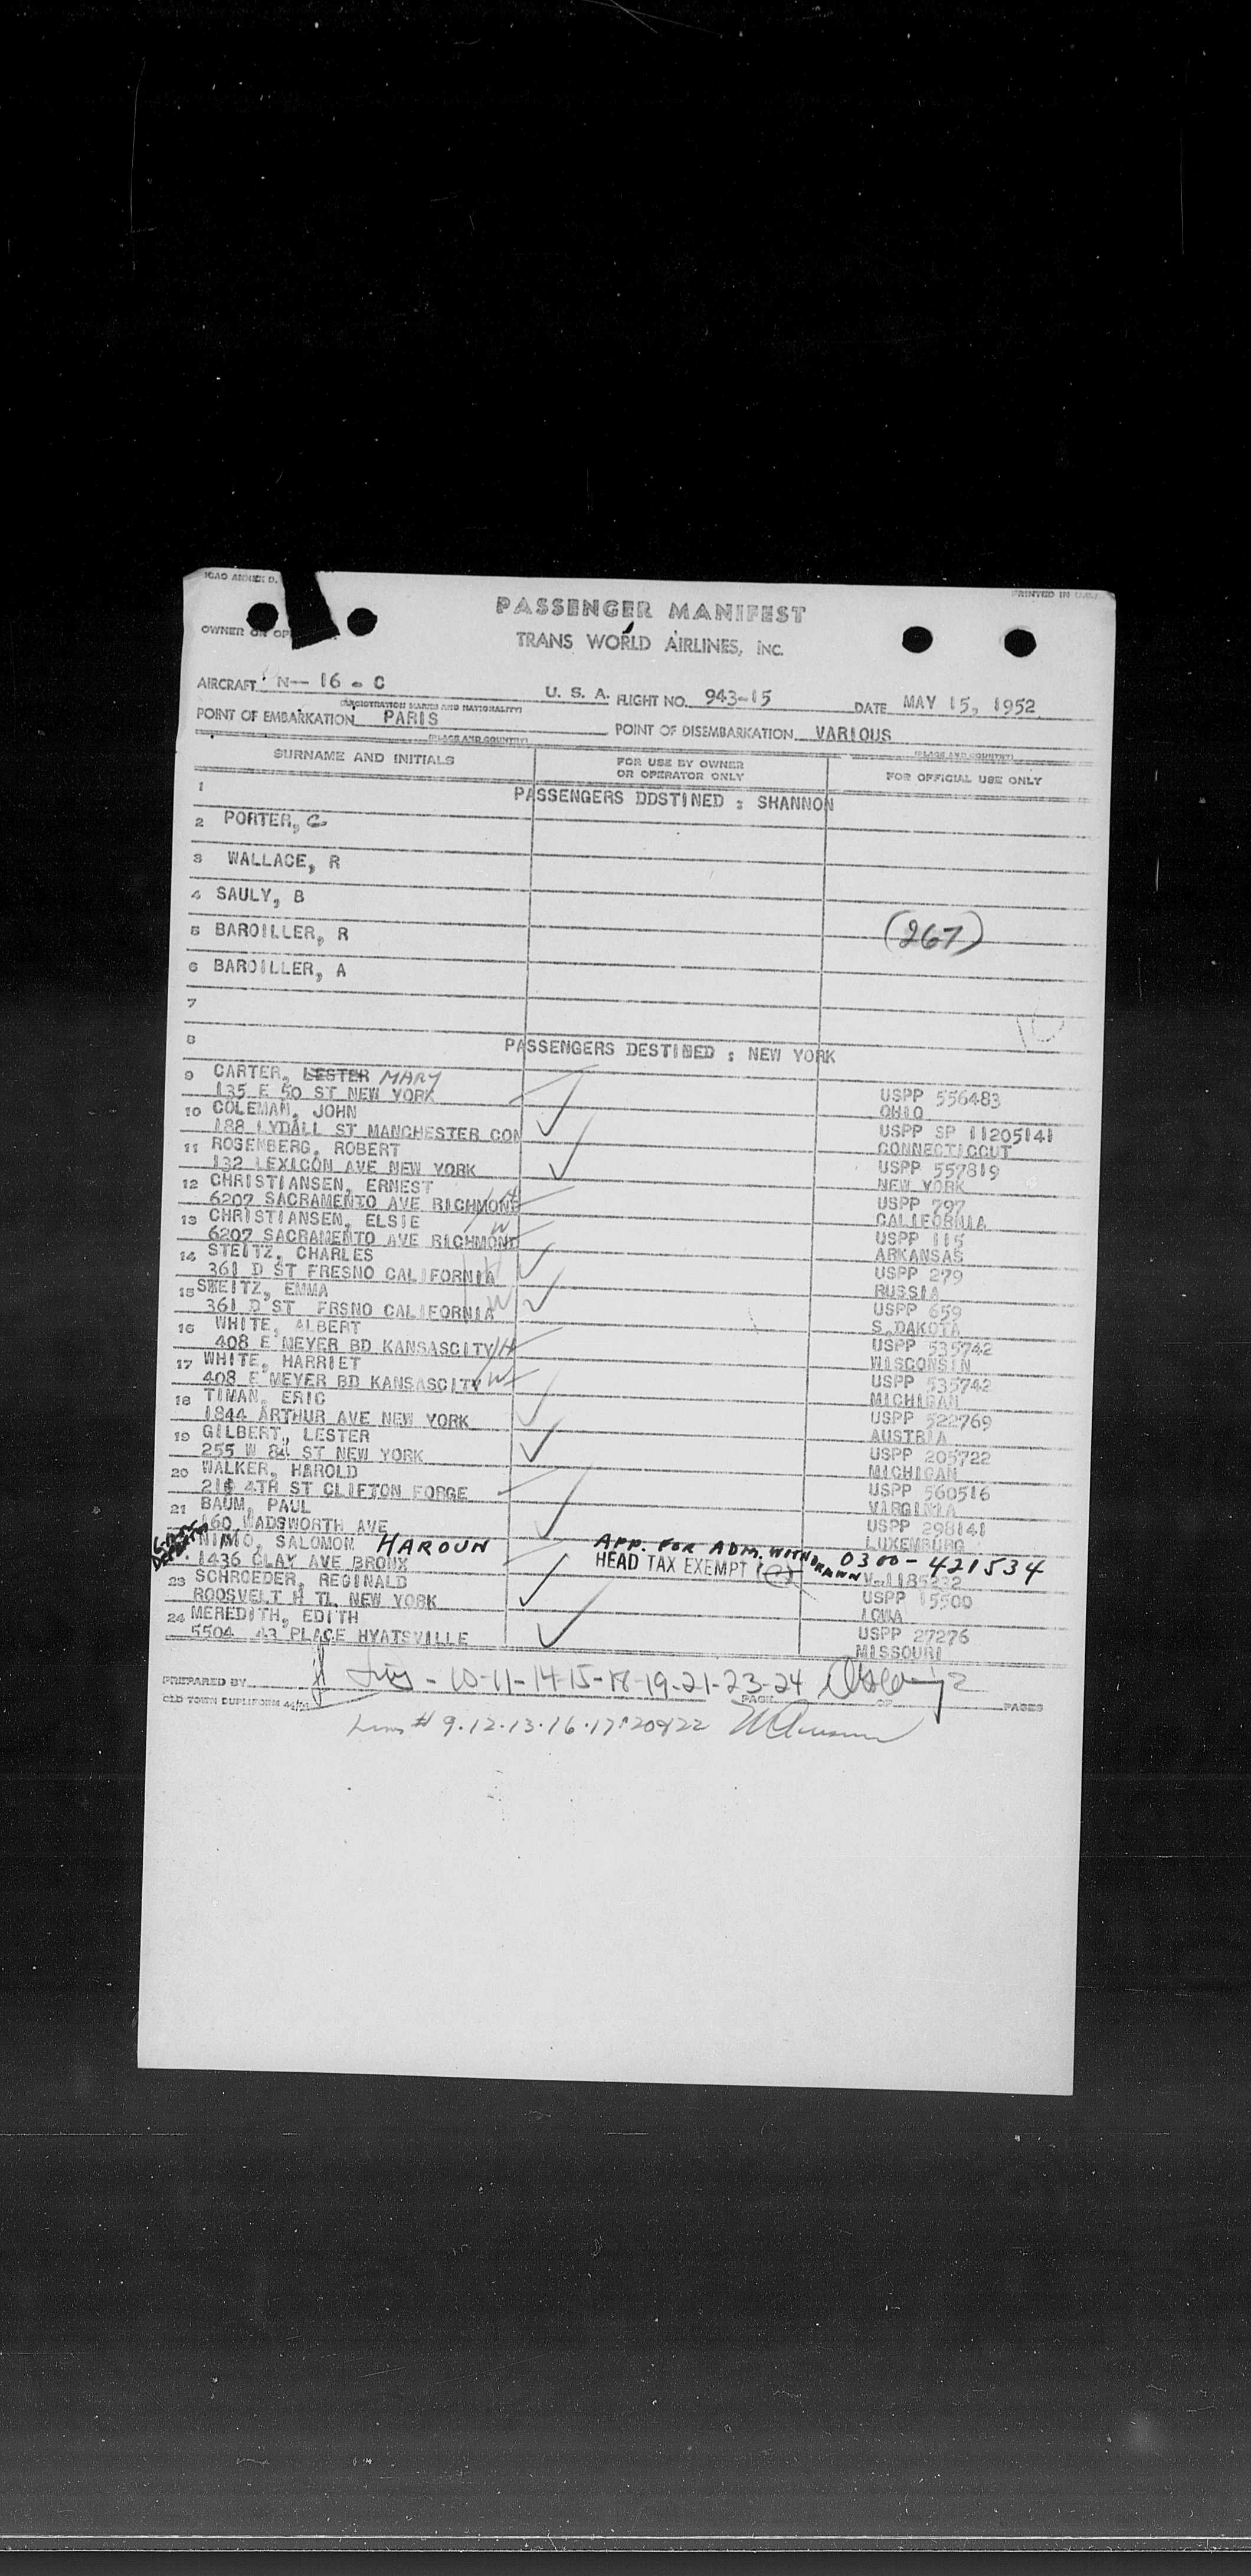 ICAO ANNEX 9.
PRINTED IN U.S.A.
PASSENGER MANIFEST
OWNER OR OP
TRANS WORLD AIRLINES, INC.
AIRCRAFT N- 16 - C U. S. A. FLIGHT NO. 943-15 DATE MAY 15, 1952
(REGISTRATION MARKS AND NATIONALITY)
POINT OF EMBARKATION PARIS POINT OF DISEMBARKATION VARIOUS
(PLACE AND COUNTRY) (PLACE AND COUNTRY)
SURNAME AND INITIALS FOR USE BY OWNER OR OPERATOR ONLY FOR OFFICIAL USE ONLY
1 PASSENGERS DDSTINED : SHANNON
2 PORTER, G
3 WALLACE, R
4 SAULY, B
5 BAROILLER, R (267)
6 BAROILLER, A
7
8 PASSENGERS DESTINED : NEW YORK
9 CARTER, LESTER MARY
135 E 50 ST NEW YORK USPP 556483
10 COLEMAN, JOHN OHIO
188 LYDALL ST MANCHESTER CON USPP SP 11205141
11 ROSENBERG, ROBERT CONNECTICCUT
132 LEXICON AVE NEW YORK USPP 557819
12 CHRISTIANSEN, ERNEST NEW YORK
6207 SACRAMENTO AVE RICHMOND H USPP 797
13 CHRISTIANSEN, ELSIE CALLEORNIA
6207 SACRAMENTO AVE RICHMOND W USPP 115
14 STEITZ, CHARLES ARKANSAS
361 D ST FRESNO CALIFORNIA H USPP 279
15 STEITZ, EMMA RUSSIA
361 D ST FRSNO CALIFORNIA W USPP 659
16 WHITE, ALBERT S.DAKOTA
408 E MEYER BD KANSASCITY H USPP 535742
17 WHITE, HARRIET WISCONSIN
408 E MEYER BD KANSASCITY W USPP 535742
18 TIMAN, ERIC MICHIGAN
1844 ARTHUR AVE NEW YORK USPP 522769
19 GILBERT, LESTER AUSTRIA
255 W 84 ST NEW YORK USPP 205722
20 WALKER, HAROLD MICHIGAN
216 4TH ST CLIFTON FORGE USPP 560516
21 BAUM, PAUL VIRGINIA
160 WADSWORTH AVE USPP 298141
NIMO, SALOMON HAROUN LUXEMBURG
APP. FOR ADM. WITHDRAWN 0300-421534
1436 CLAY AVE BRONX HEAD TAX EXEMPT V-1185232
23 SCHROEDER, REGINALD
ROOSVELT H TL NEW YORK USPP 15509
24 MEREDITH, EDITH IOWA
5504 43 PLACE HYATSVILLE USPP 27276
MISSOURI
PREPARED BY - 10-11-14-15-18-19-21-23-24
OLD TOWN DUPLIFORM PAGE OF 2 PAGES
Lines # 9.12.13.16.17.20&22